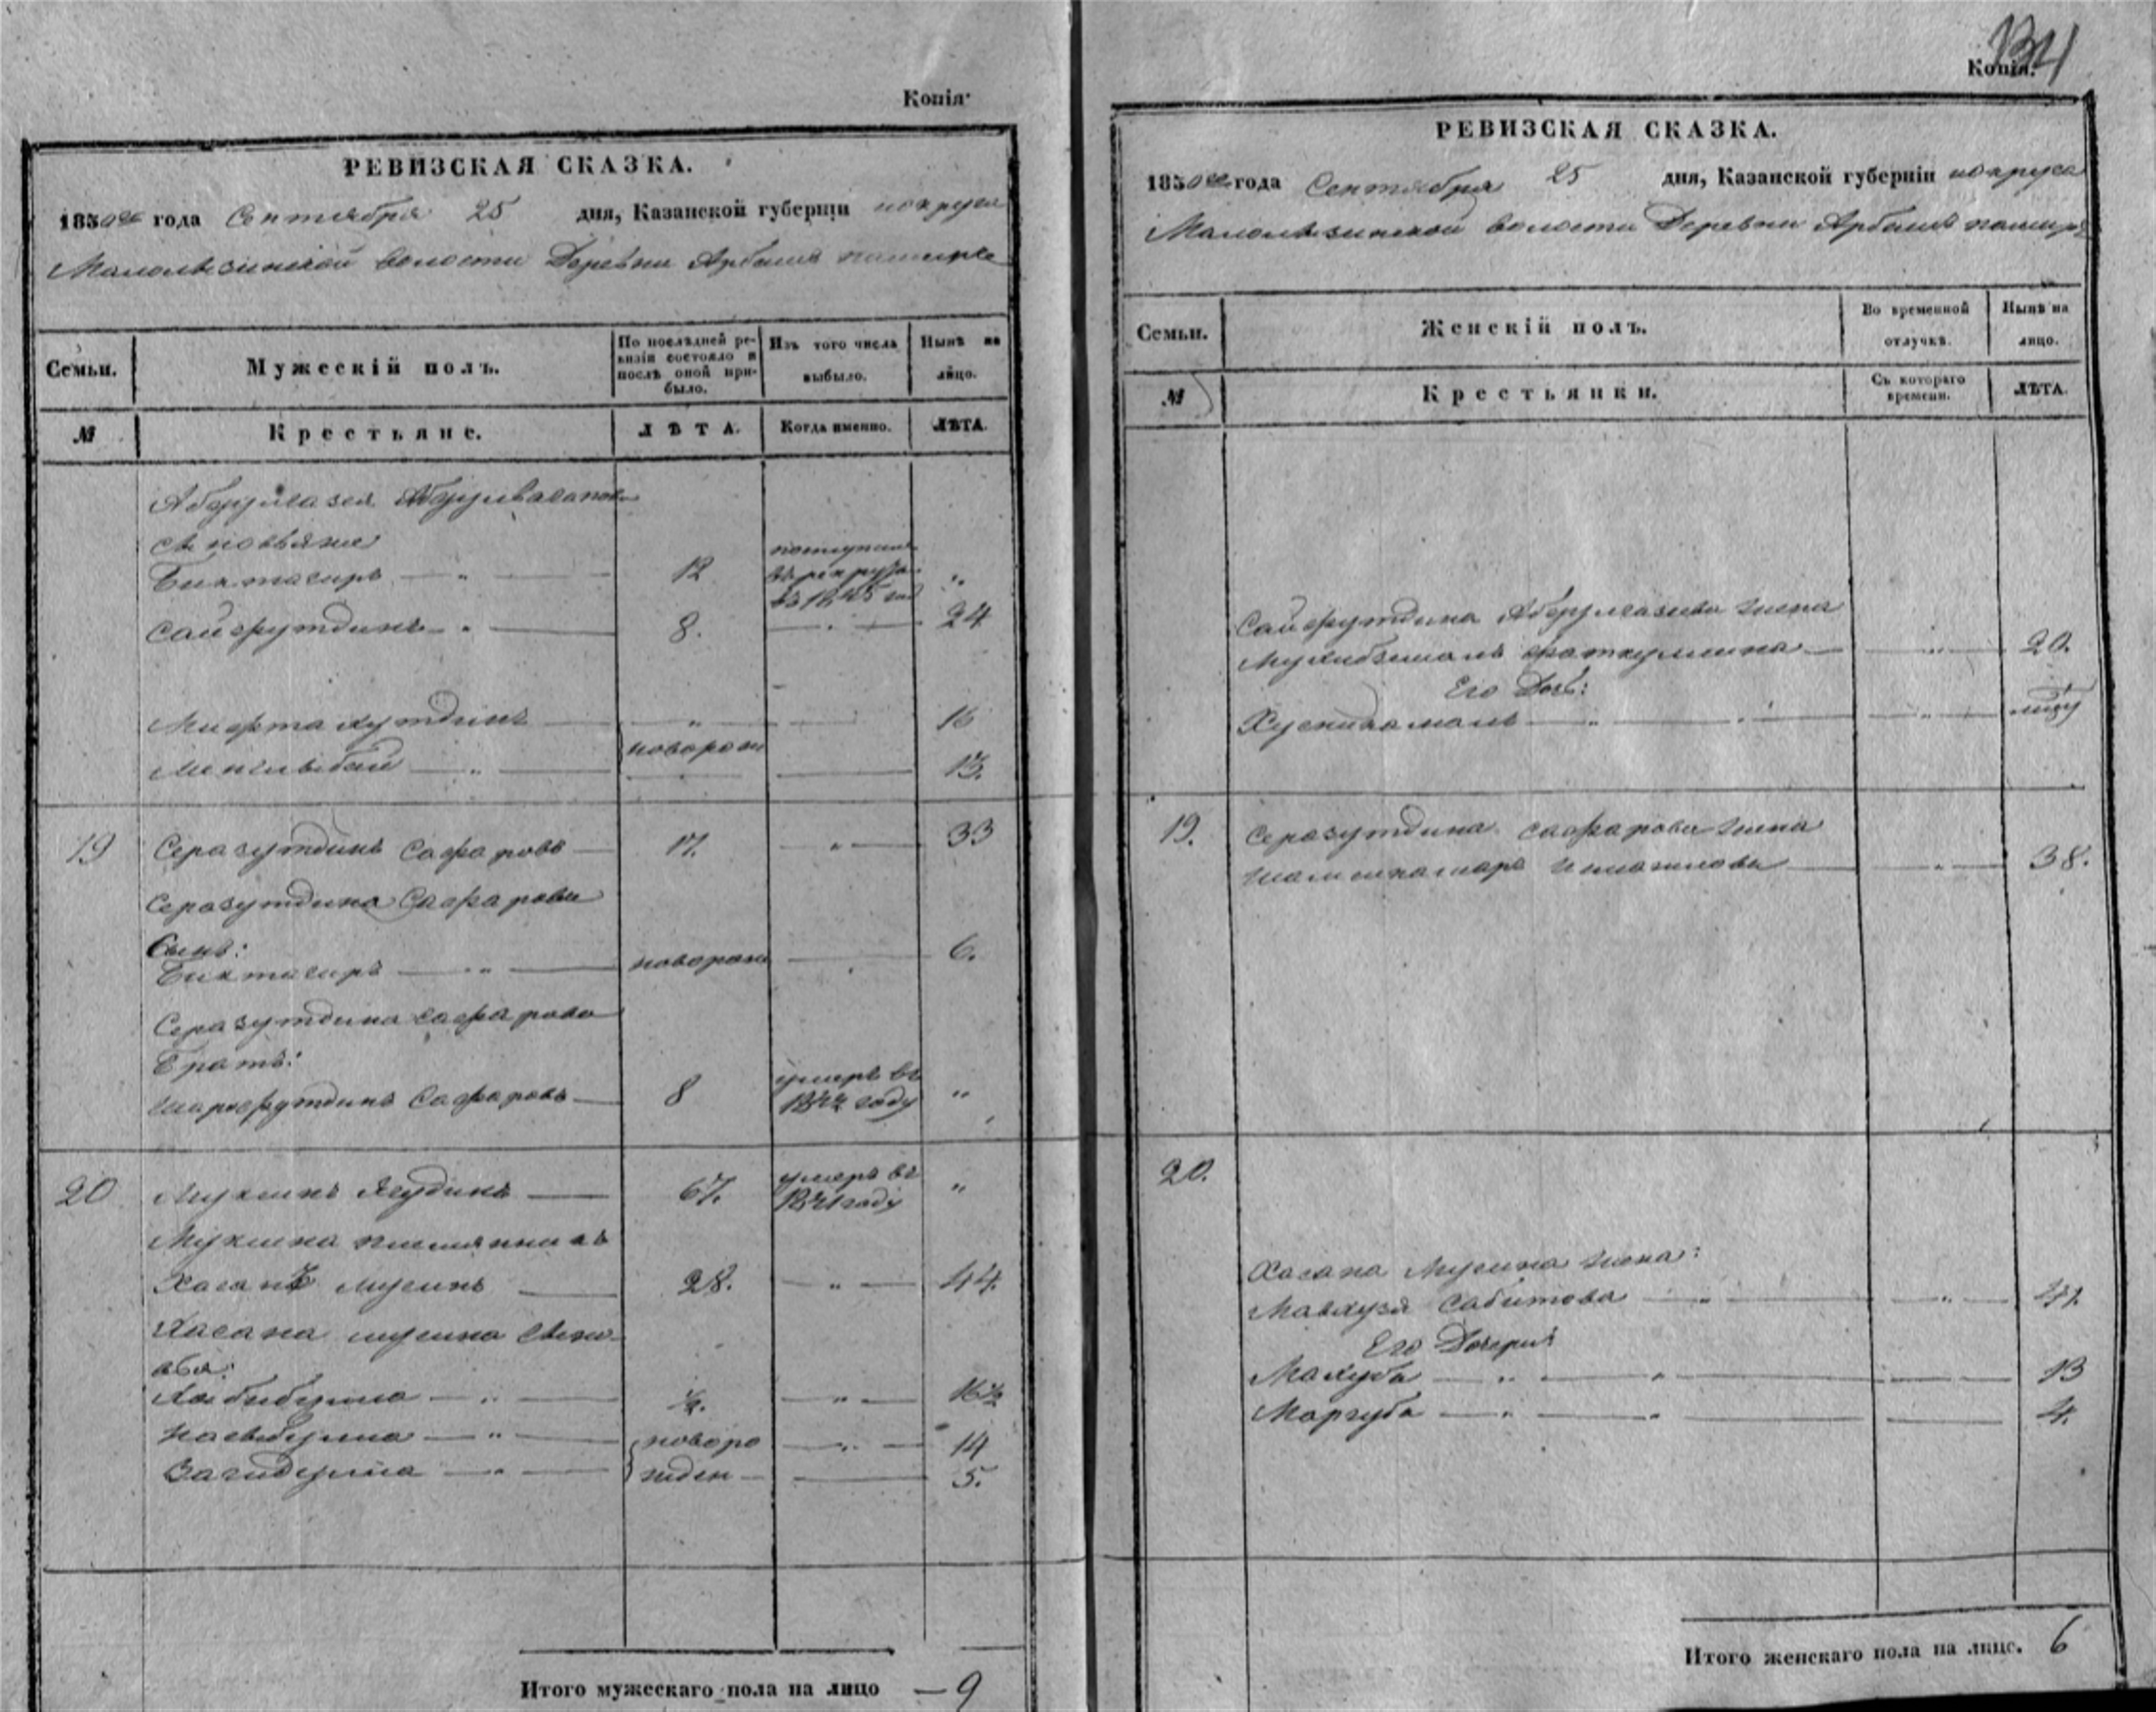 Копія.
РЕВИЗСКАЯ СКАЗКА.
1850го года Сентября 25 дня, Казанской губерніи
волости Деревни Арбашъ
Семьи.
Мужескій полъ.
По послѣдней ре-
визіи состояло и
послѣ оной при-
было.
Изъ того числа
выбыло.
Нынѣ на
лицо.
№
Крестьяне.
ЛѢТА.
Когда именно.
ЛѢТА.
сыновья
Биктагиръ — " — 12 поступилъ
въ рекруты "
въ 1845 год
Сайфутдинъ — " — 8. — " — 24
Мифтахутдинъ — " — 16
новорож
— " — 13.
19 Серазутдинъ Сафаровъ — 17. — " — 33
Серазутдина Сафарова
Сынъ:
Биктагиръ — " — новорож — 6.
Серазутдина Сафарова
Братъ:
Шарафутдинъ Сафаровъ — 8 умеръ въ "
году
20 Мухминъ Ягудинъ — 67. умеръ въ "
1841 году
Мухмина племянникъ
Хасанъ Мусинъ — 28. — " — 44.
Хасана Мусина сыно-
вья:
Хабибулла — " — ½. — " — 16½
— " — новоро — " — 14
— " — жден — 5.
Итого мужескаго пола на лицо — 9
134
Копія.
РЕВИЗСКАЯ СКАЗКА.
1850го года Сентября 25 дня, Казанской губерніи
волости Деревни Арбашъ
Семьи.
Женскій полъ.
Во временной
отлучкѣ.
Нынѣ на
лицо.
№
Крестьянки.
Съ котораго
времени.
ЛѢТА.
Сайфутдина Абдулгазева жена
— " — 20.
Его Дочь:
Хуснизамалъ — " — " — " —
19. Серазутдина Сафарова жена
— " — 38.
20.
Хасана Мусина жена:
Мавхузя Сабитова — " — " — 41.
Его Дочери:
Махуба — " — " — 13
Маргуба — " — " — 4.
Итого женскаго пола на лицо. 6